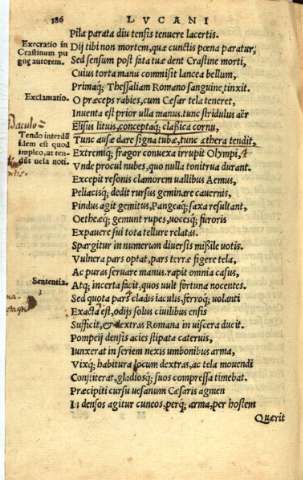 186 LVCANI
Pila parata diu tensis tenuere lacertis.
Execratio in Crastinum pugnæ autorem.
Dij tibi non mortem, quæ cunctis pœna paratur,
Sed sensum post fata tuæ dent Crastine morti,
Cuius torta manu commisit lancea bellum,
Primaq; Thessaliam Romano sanguine tinxit.
Exclamatio.
O præceps rabies, cum Cæsar tela teneret,
Inuenta est prior ulla manus. tunc stridulus aër
Elisus lituis, conceptaq; classica cornu,
Tunc ausæ dare signa tubæ, tunc æthera tendit,
Extremiq; fragor conuexa irrupit Olympi,
Vnde procul nubes, quo nulla tonitrua durant.
Excepit resonis clamorem uallibus Aemus,
Peliacisq; dedit rursus geminare cauernis.
Pindus agit gemitus, Pangæaq; saxa resultant,
Oetheæq; gemunt rupes, uocesq; furoris
Expauere sui tota tellure relatas.
Spargitur in numerum diuersis missile uotis.
Vulnera pars optat, pars terræ figere tela,
Ac puras seruare manus. rapit omnia casus,
Sententia.
Atq; incerta facit, quos uult fortuna nocentes.
Sed quota pars cladis iaculis, ferroq; uolanti
Exacta est, odijs solus ciuilibus ensis
Sufficit, & dextras Romana in uiscera ducit.
Pompeij densis acies stipata cateruis,
Iunxerat in seriem nexis umbonibus arma,
Vixq; habitura locum dextras, ac tela mouendi
Constiterat, gladiosq; suos compressa timebat.
Præcipiti cursu uesanum Cæsaris agmen
In densos agitur cuneos, perq; arma, per hostem
Quærit